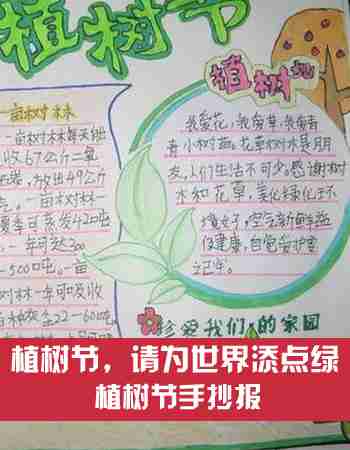 植树节
亩树林
一亩树林每天能
收67公斤二氧
放出49公斤
一亩树林一
夏季可蒸发420吨
一年可达300
-500吨。一亩
树林一年可吸收
各种灰尘22-60吨
植树
我爱花,我爱草,我爱青
青小树苗。花草树木是朋
友,人们生活不可少。感谢树
木和花草,美化绿化环
境好,空气新鲜益
健康,自觉爱护
卫生。
珍爱我们的家园
植树节，请为世界添点绿
植树节手抄报